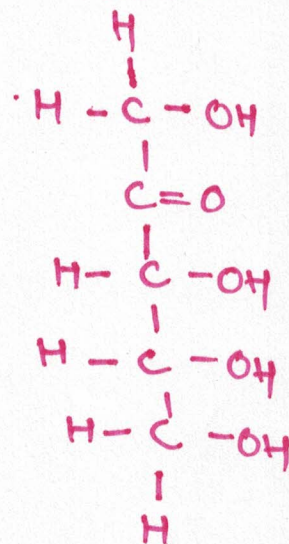 H
H - C - OH
C = O
H - C - OH
H - C - OH
H - C - OH
H